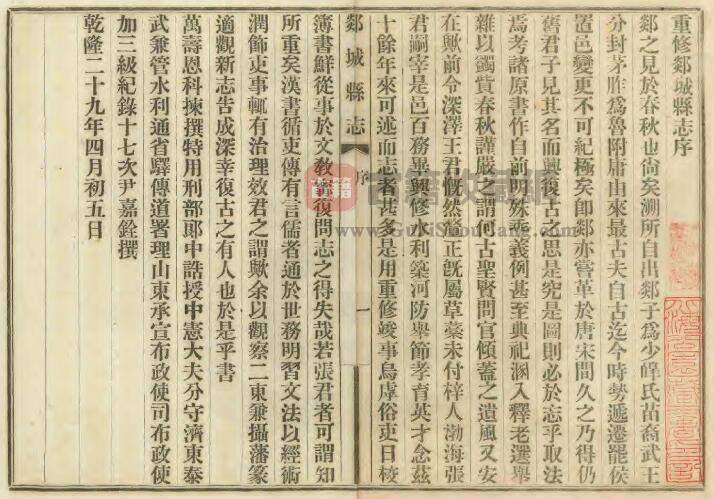 重修郯城縣志序
郯之見於春秋也尚矣溯所自出郯子爲少皥氏苗裔武王
分封茅胙爲魯附庸由來最古夫自古迄今時勢遞遷罷侯
置邑變更不可紀極矣卽郯亦嘗革於唐宋間久之乃得仍
舊君子見其名而興復古之思是究是圖則必於志乎取法
焉考諸原書作自前明殊乖義例甚至典祀溷入釋老選舉
雜以蠲貲春秋謹嚴之謂何古聖賢問官傾蓋之遺風又安
在歟前令深澤王君慨然釐正旣屬草藁未付梓人渤海張
君嗣宰是邑百務畢興修水利築河防舉節孝育英才念茲
十餘年來可述而志者甚多是用重修竣事烏虖俗吏日棱
郯城縣志
序
一
簿書鮮從事於文敎寧復問志之得失哉若張君者可謂知
所重矣漢書循吏傳有言儒者通於世務明習文法以經術
潤飾吏事輒有治理效君之謂歟余以觀察二東兼攝藩篆
適觀新志告成深幸復古之有人也於是乎書
萬壽恩科揀撰特用刑部郎中誥授中憲大夫分守濟東泰
武兼管水利通省驛傳道署理山東承宣布政使司布政使
加三級紀錄十七次尹嘉銓撰
乾隆二十九年四月初五日
古籍
古籍收藏網
www.GuJiShouCang.com